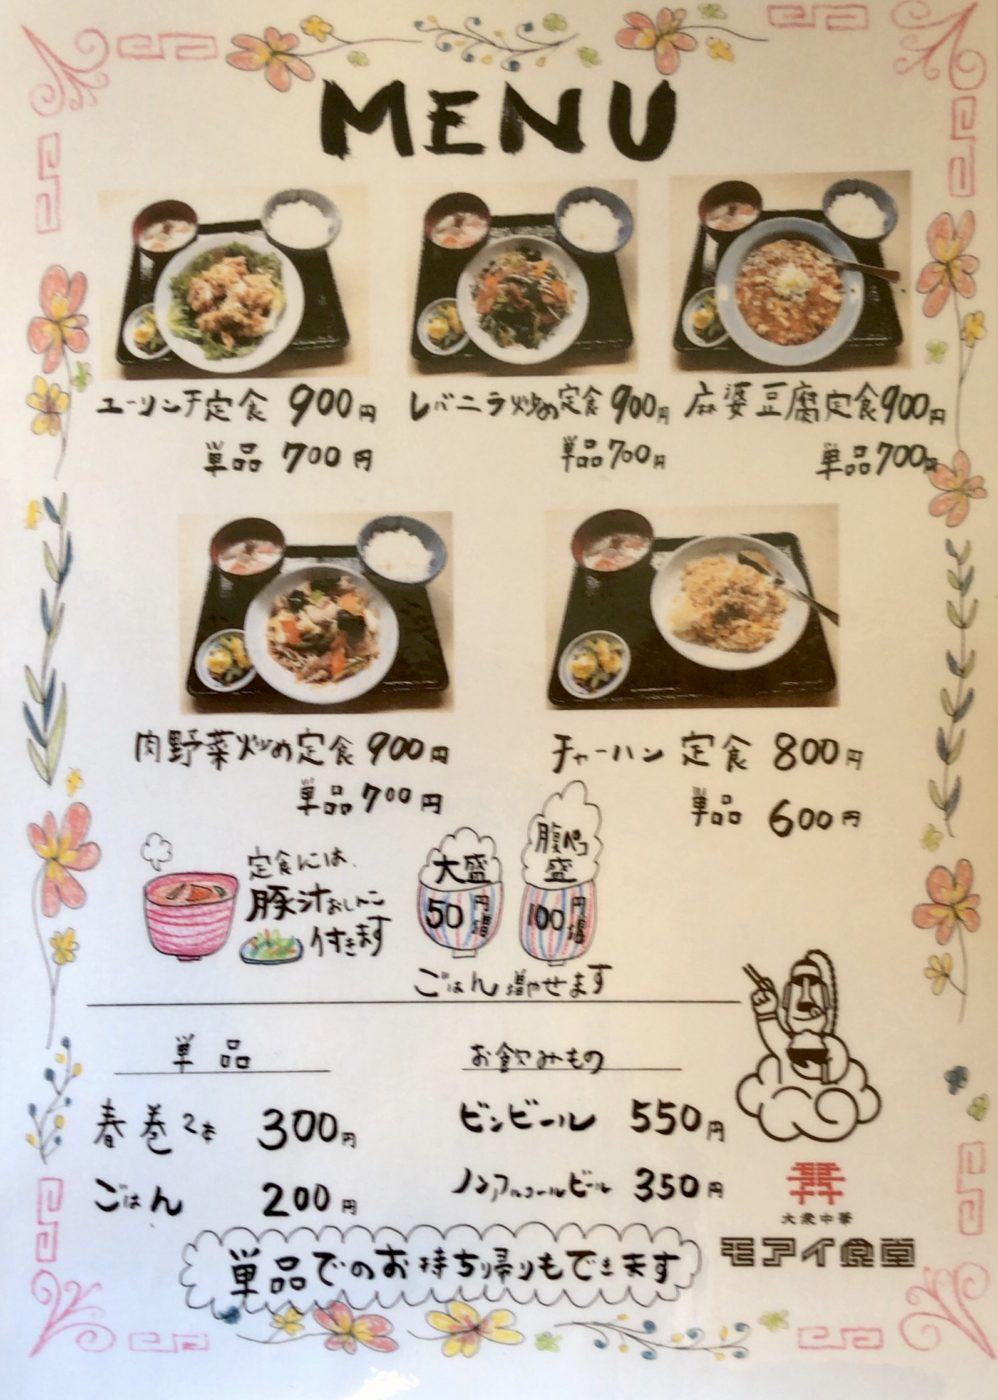 MENU
ユーリンチ定食 900円
単品 700円
レバニラ炒め定食 900円
単品 700円
麻婆豆腐定食 900円
単品 700円
肉野菜炒め定食 900円
単品 700円
チャーハン 定食 800円
単品 600円
定食には、
豚汁おしんこ
付きます
大盛
50円増
腹ペコ
盛
100円増
ごはん 増やせます
単品
春巻 2本 300円
ごはん 200円
お飲みもの
ビンビール 550円
ノンアルコールビール 350円
単品でのお持ち帰りもできます
大衆中華
モアイ食堂